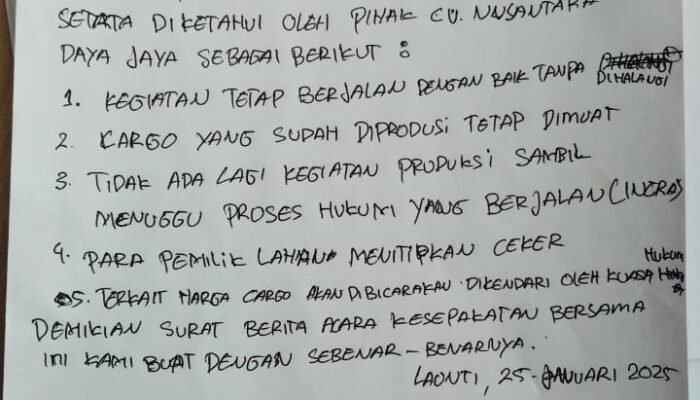 SETATA DIKETAHUI OLEH PIHAK CV. NNSANTARA
DAYA JAYA SEBAGAI BERIKUT :
1. KEGIATAN TETAP BERJALAN DENGAN BAIK TANPA DIHALANGI
2. CARGO YANG SUDAH DIPRODUSI TETAP DIMUAT
3. TIDAK ADA LAGI KEGIATAN PRODUKSI SAMBIL
MENUGGU PROSES HUKUM YANG BERJALAN (INCRA)
4. PARA PEMILIK LAHAN MENITIPKAN CEKER
5. TERKAIT HARGA CARGO AKAN DIBICARAKAN DIKENDARI OLEH KUASA HUKUM
DEMIKIAN SURAT BERITA ACARA KESEPAKATAN BERSAMA
INI KAMI BUAT DENGAN SEBENAR-BENARNYA.
LAONTI, 25-JANUARI 2025